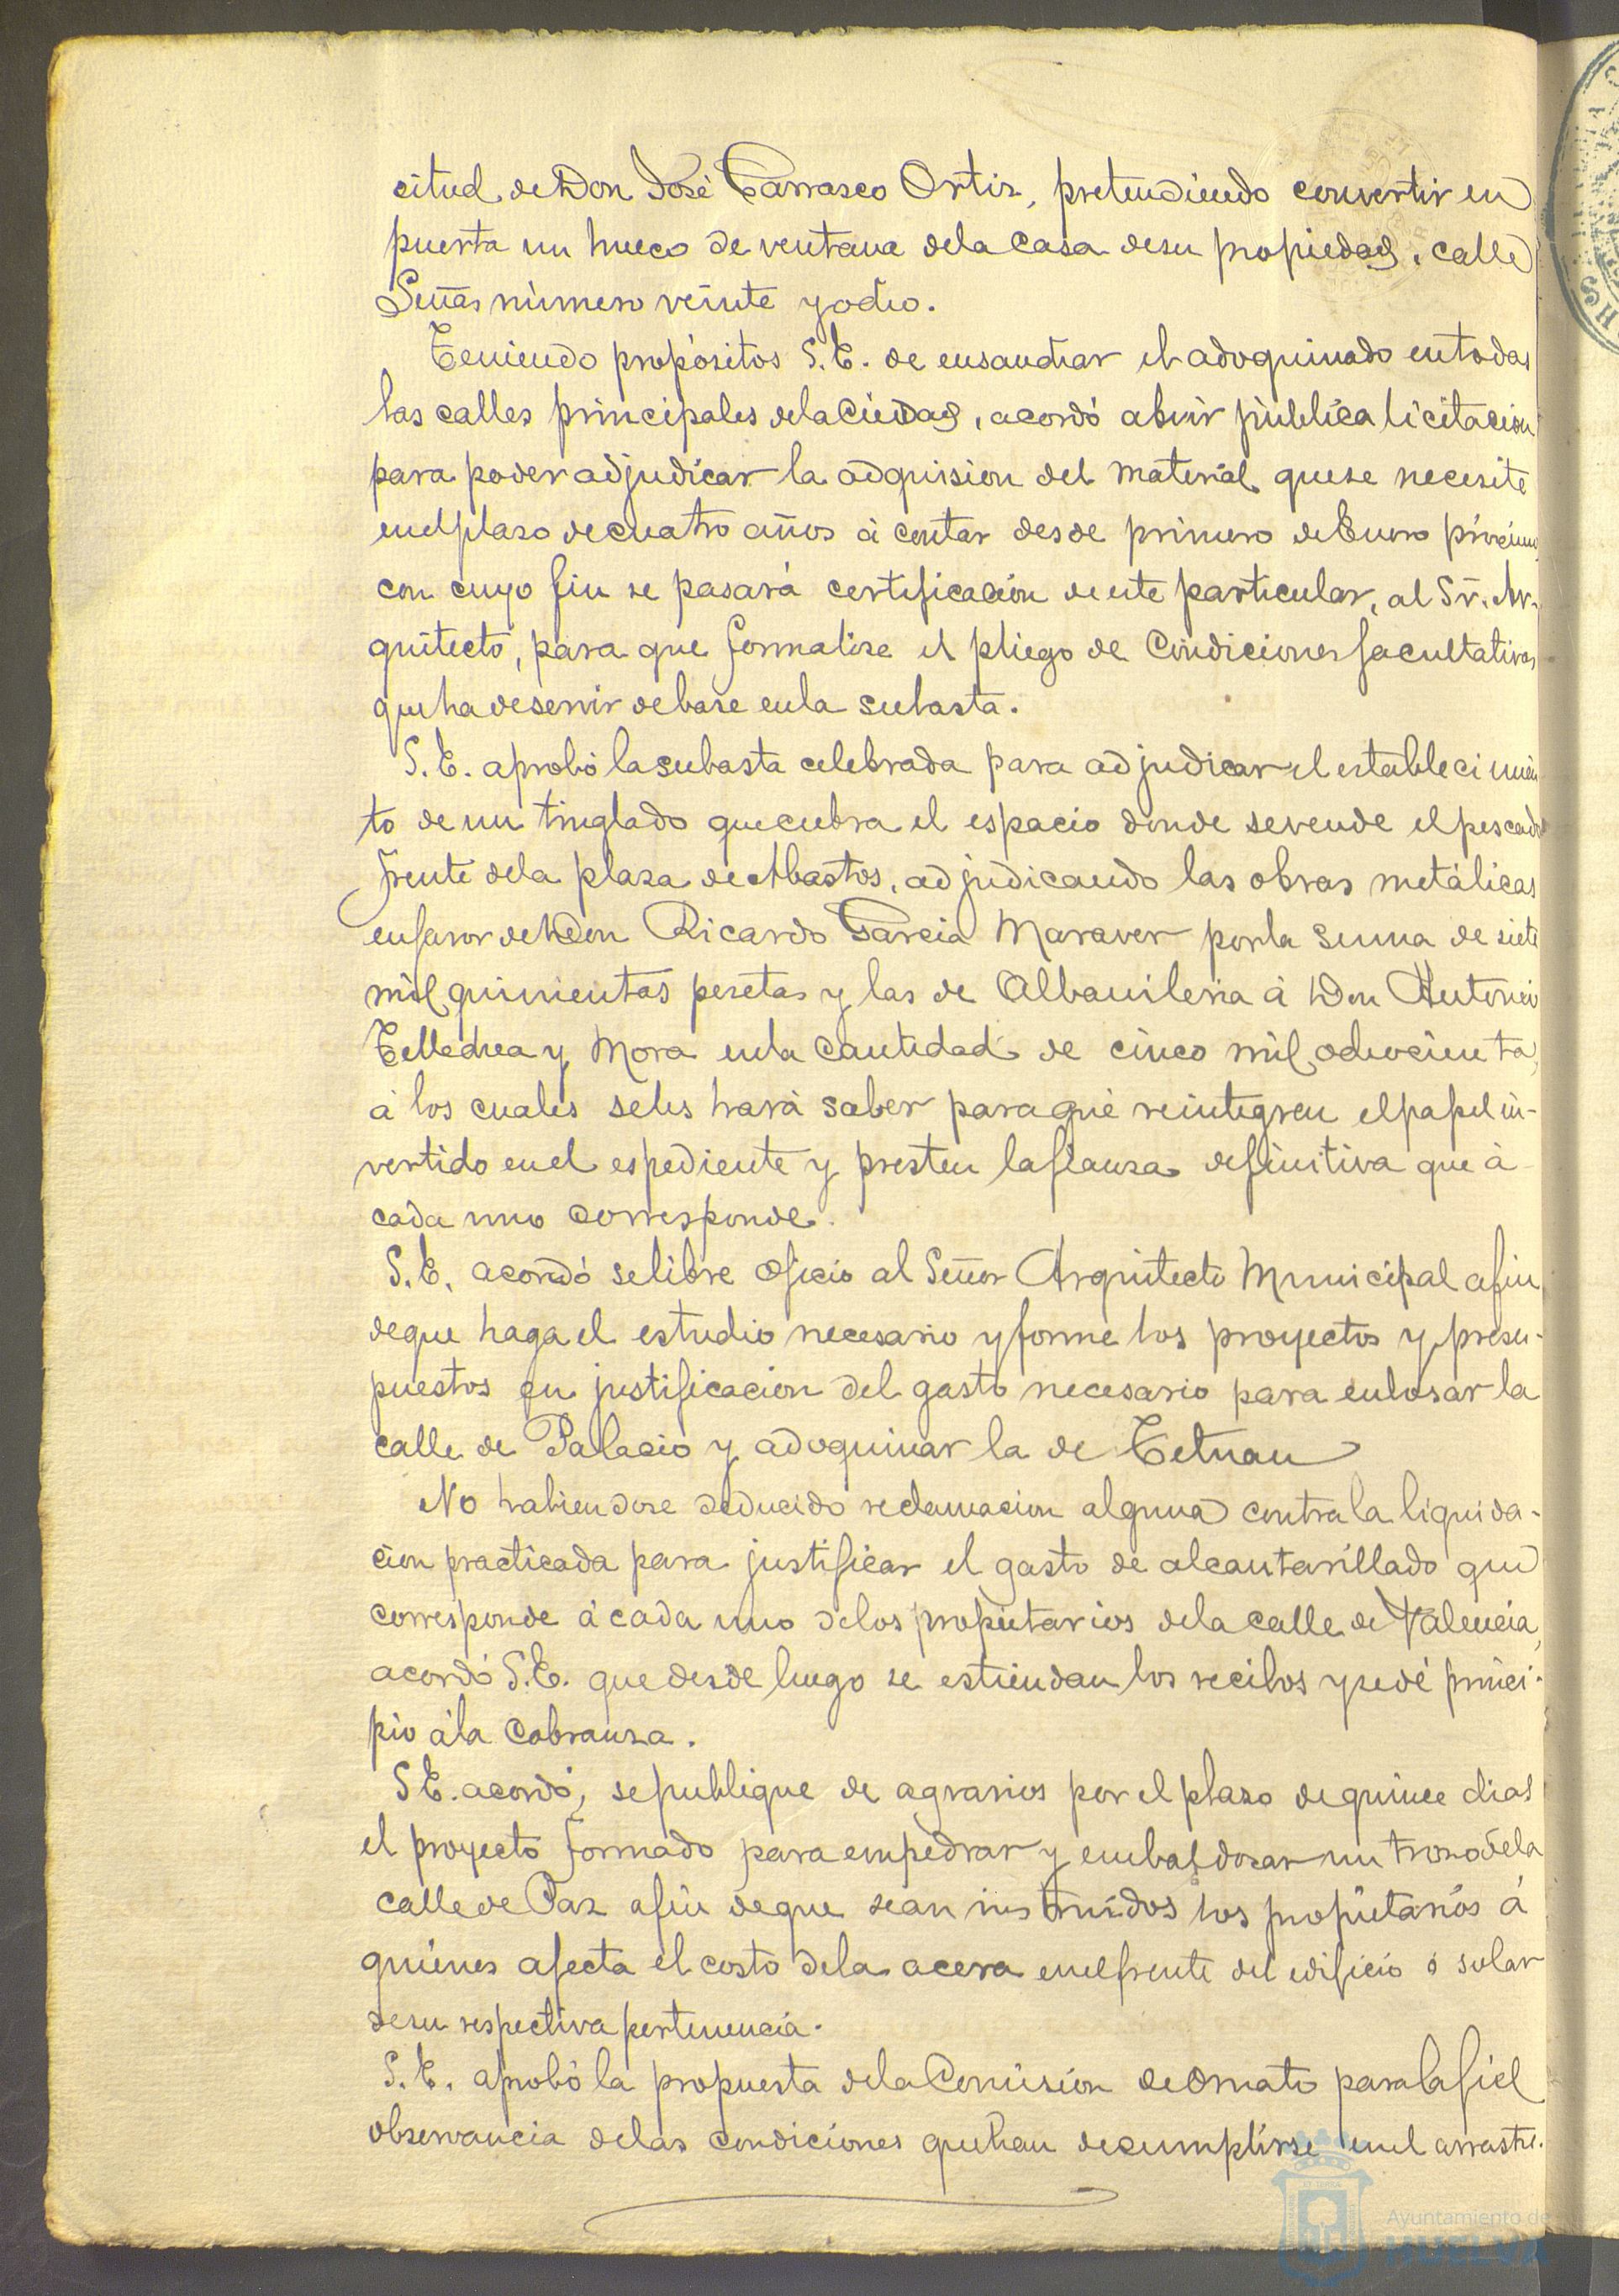 citud de Don José Carrasco Ortiz, pretendiendo convertir en
puerta un hueco de ventana de la casa de su propiedad, calle
Señas número veinte y ocho.
Teniendo propósitos S.E. de ensanchar el adoquinado en todas
las calles principales de la Ciudad, acordó abrir pública licitacion
para poder adjudicar la adquision del material que se necesite
en el plazo de cuatro años á contar desde primero de Enero próximo
con cuyo fin se pasará certificación de este particular, al Sr. Ar-
quitecto, para que formalize el pliego de Condiciones facultativas
que ha de servir de base en la subasta.
S.E. aprobó la subasta celebrada para adjudicar el establecimien
to de un tinglado que cubra el espacio donde se vende el pescado
frente de la plaza de Abastos, adjudicando las obras metálicas
en favor de Don Ricardo Garcia Maraver por la suma de siete
mil quinientas pesetas y las de Albañileria á Don Antonio
Tellechea y Mora en la Cantidad de cinco mil ochocientas,
á los cuales se les hará saber para que reintegren el papel in-
vertido en el espediente y presten la fianza definitiva que á
cada uno corresponde.
S.E. acordó se libre oficio al Señor Arquitecto Municipal afin
de que haga el estudio necesario y forme los proyectos y presu-
puestos en justificacion del gasto necesario para enlosar la
calle de Palacio y adoquinar la de Tetuan
No habiendose deducido reclamacion alguna contra la liquida-
cion practicada para justificar el gasto de alcantarillado que
corresponde á cada uno de los propietarios de la calle de Valencia,
acordó S.E. que desde luego se estiendan los recibos y se dé princi-
pio á la Cobranza.
S E. acordó, se publique de agravios por el plazo de quince dias
el proyecto formado para empedrar y embaldozar un trozo de la
calle de Paz afin de que sean instruidos los propietarios á
quienes afecta el costo de la acera en el frente del edificio ó solar
de su respectiva pertenencia.
S.E. aprobó la propuesta de la Comisión de Ornato para la fiel
observancia de las condiciones que han de cumplirse en el arrastre.
Ayuntamiento de
HUELVA